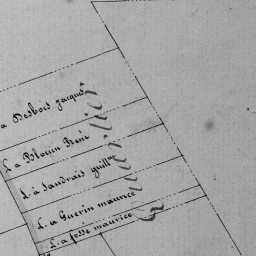 a Desbois jacques
L. a Blouin René
L. à Jaudrais guill^me
L. a Guerin maurice
L. a fosse maurice